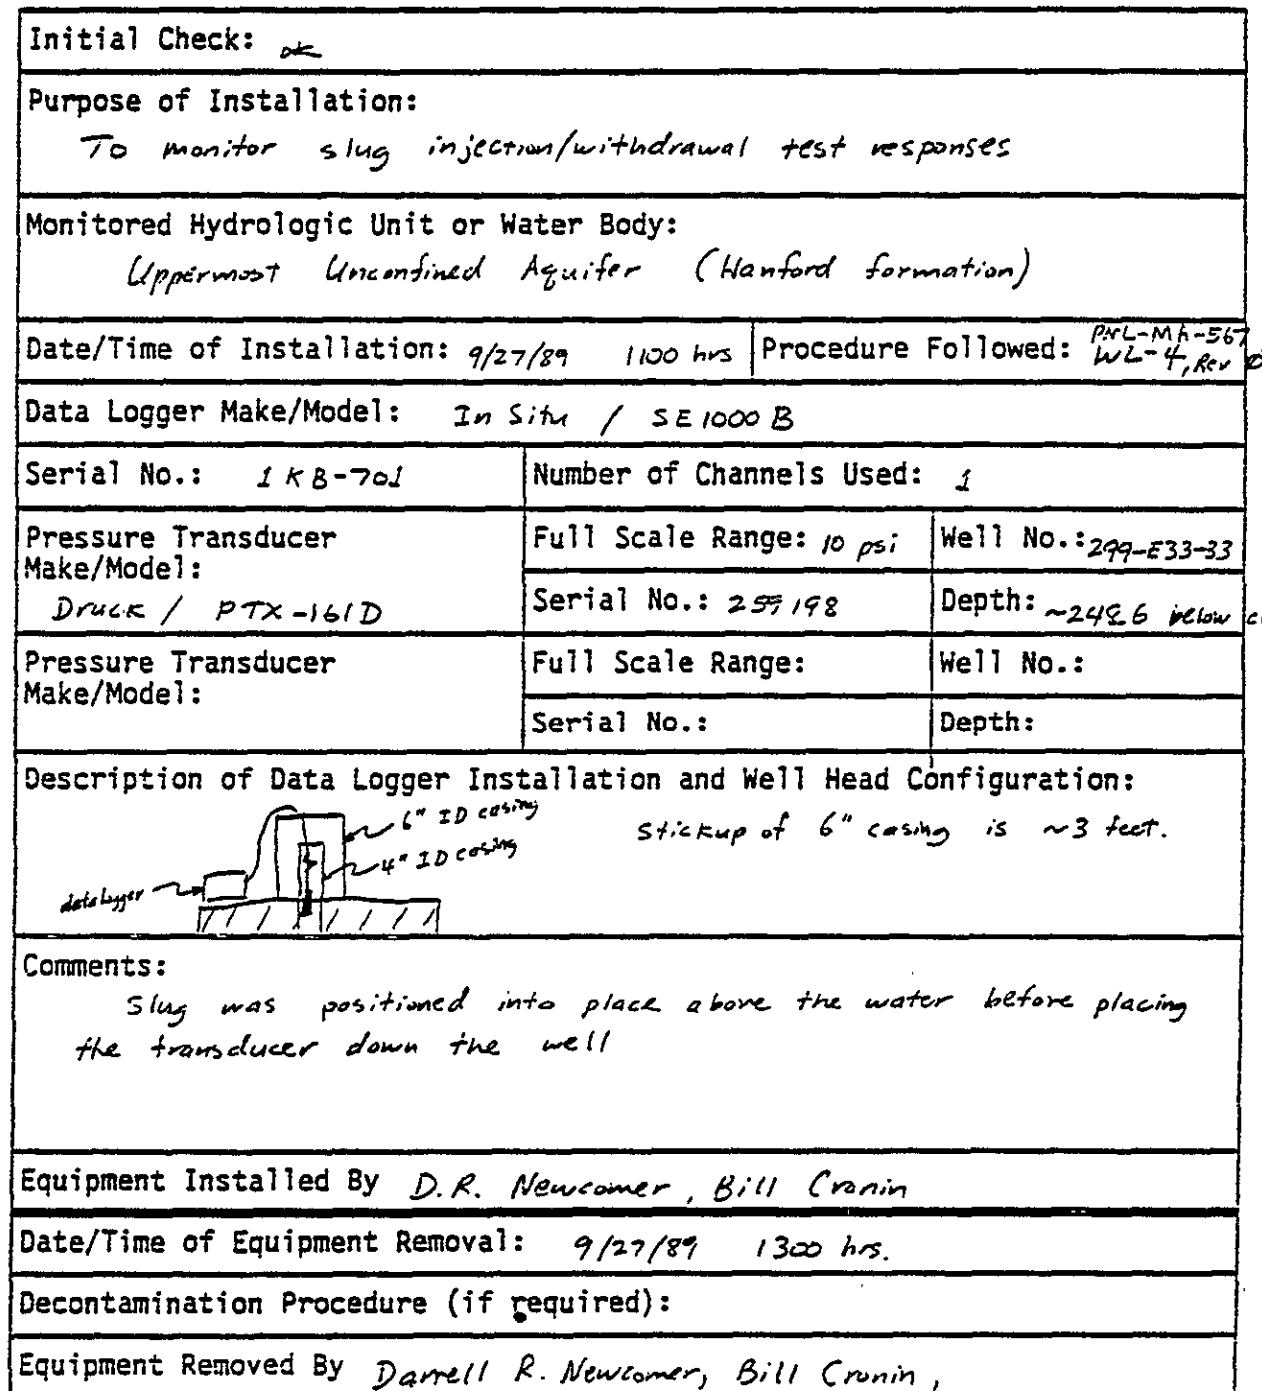 Initial Check: ok
Purpose of Installation:
To monitor slug injection/withdrawal test responses
Monitored Hydrologic Unit or Water Body:
Uppermost Unconfined Aquifer (Hanford formation)
Date/Time of Installation: 9/27/89 1100 hrs Procedure Followed: PNL-MA-567
WL-4, Rev Ø
Data Logger Make/Model: In Situ / SE1000B
Serial No.: 1KB-701 Number of Channels Used: 1
Pressure Transducer Full Scale Range: 10 psi Well No.: 299-E33-33
Make/Model:
Druck / PTX-161D Serial No.: 259198 Depth: below
Pressure Transducer Full Scale Range: Well No.:
Make/Model:
Serial No.: Depth:
Description of Data Logger Installation and Well Head Configuration:
6" ID casing Stickup of 6" casing is ~3 feet.
4" ID casing
data logger
Comments:
Slug was positioned into place above the water before placing
the transducer down the well
Equipment Installed By D.R. Newcomer, Bill Cronin
Date/Time of Equipment Removal: 9/27/89 1300 hrs.
Decontamination Procedure (if required):
Equipment Removed By Darrell R. Newcomer, Bill Cronin,